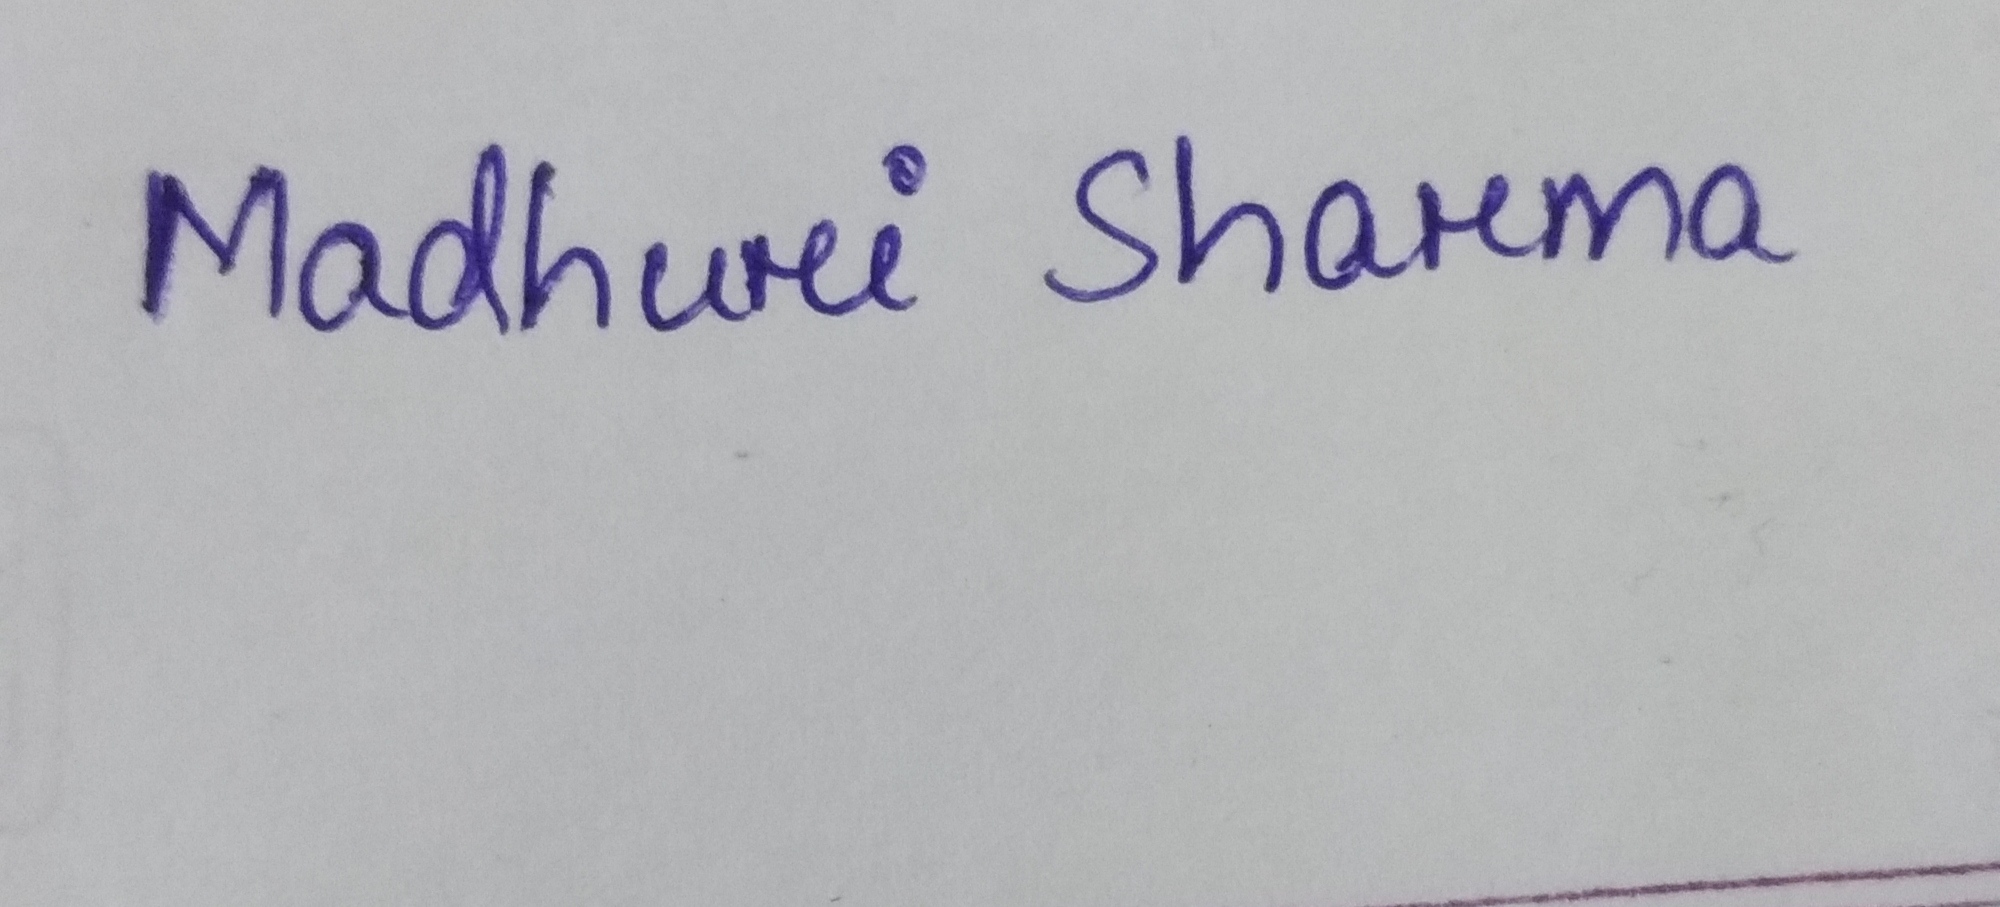 Madhuri Sharma